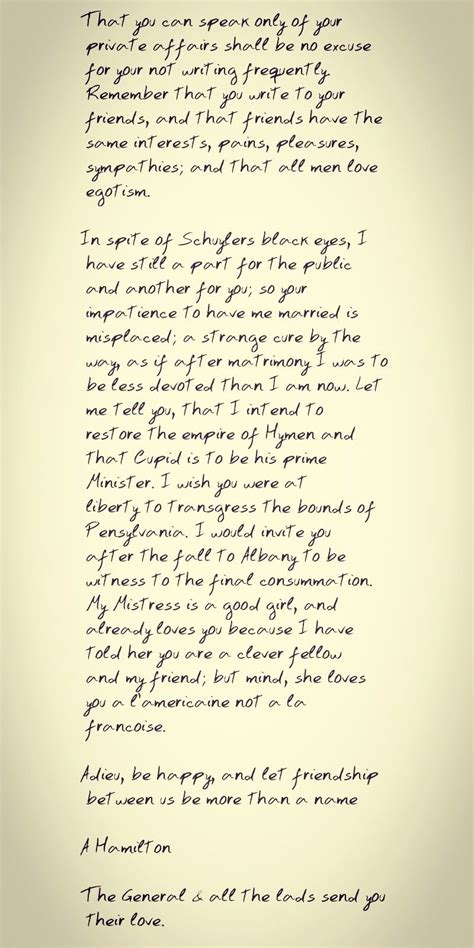 That you can speak only of your
private affairs shall be no excuse
for your not writing frequently.
Remember that you write to your
friends, and that friends have the
same interests, pains, pleasures,
sympathies; and that all men love
egotism.

In spite of Schuylers black eyes, I
have still a part for the public
and another for you; so your
impatience to have me married is
misplaced; a strange cure by the
way, as if after matrimony I was to
be less devoted than I am now. Let
me tell you, that I intend to
restore the empire of Hymen and
that Cupid is to be his prime
Minister. I wish you were at
liberty to transgress the bounds of
Pensylvania. I would invite you
after the fall to Albany to be
witness to the final consummation.
My Mistress is a good girl, and
already loves you because I have
told her you are a clever fellow
and my friend; but mind, she loves
you a l'americaine not a la
francoise.

Adieu, be happy, and let friendship
between us be more than a name

A Hamilton

The General & all the lads send you
their love.